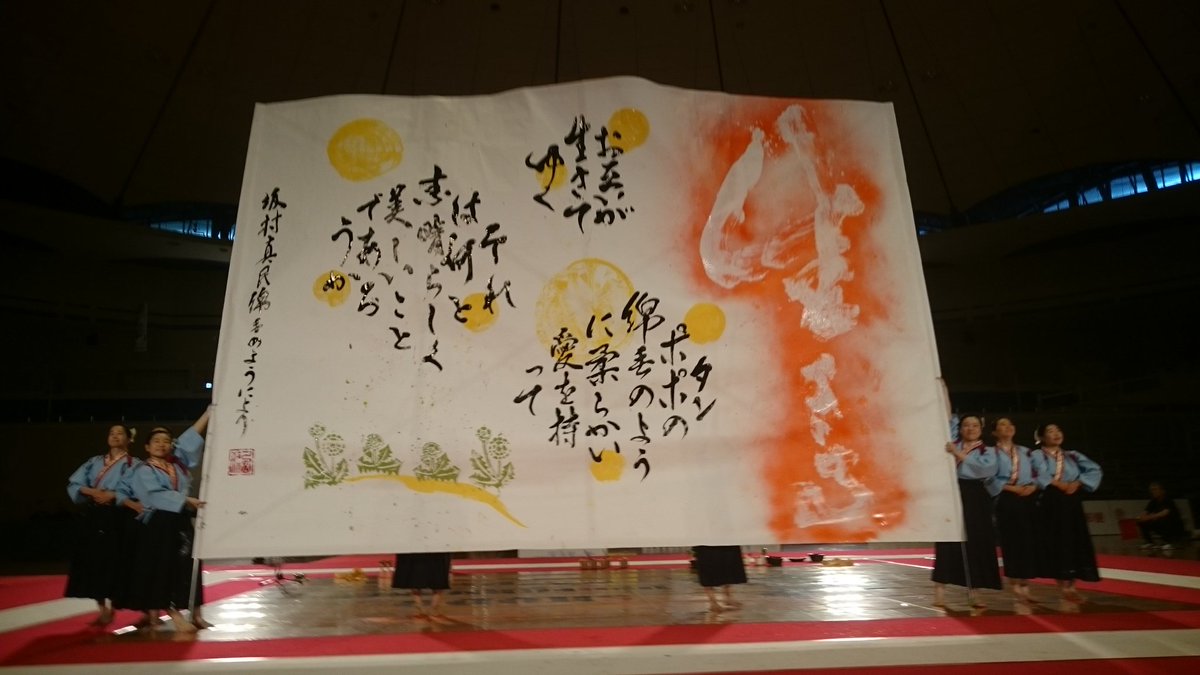 タン
ポポの
綿毛のよう
に柔らかい
愛を持
って
お互いが
生きて
ゆく
それ
は何と
素晴らしく
美しいこと
であろ
うか
坂村真民 綿毛のようにより